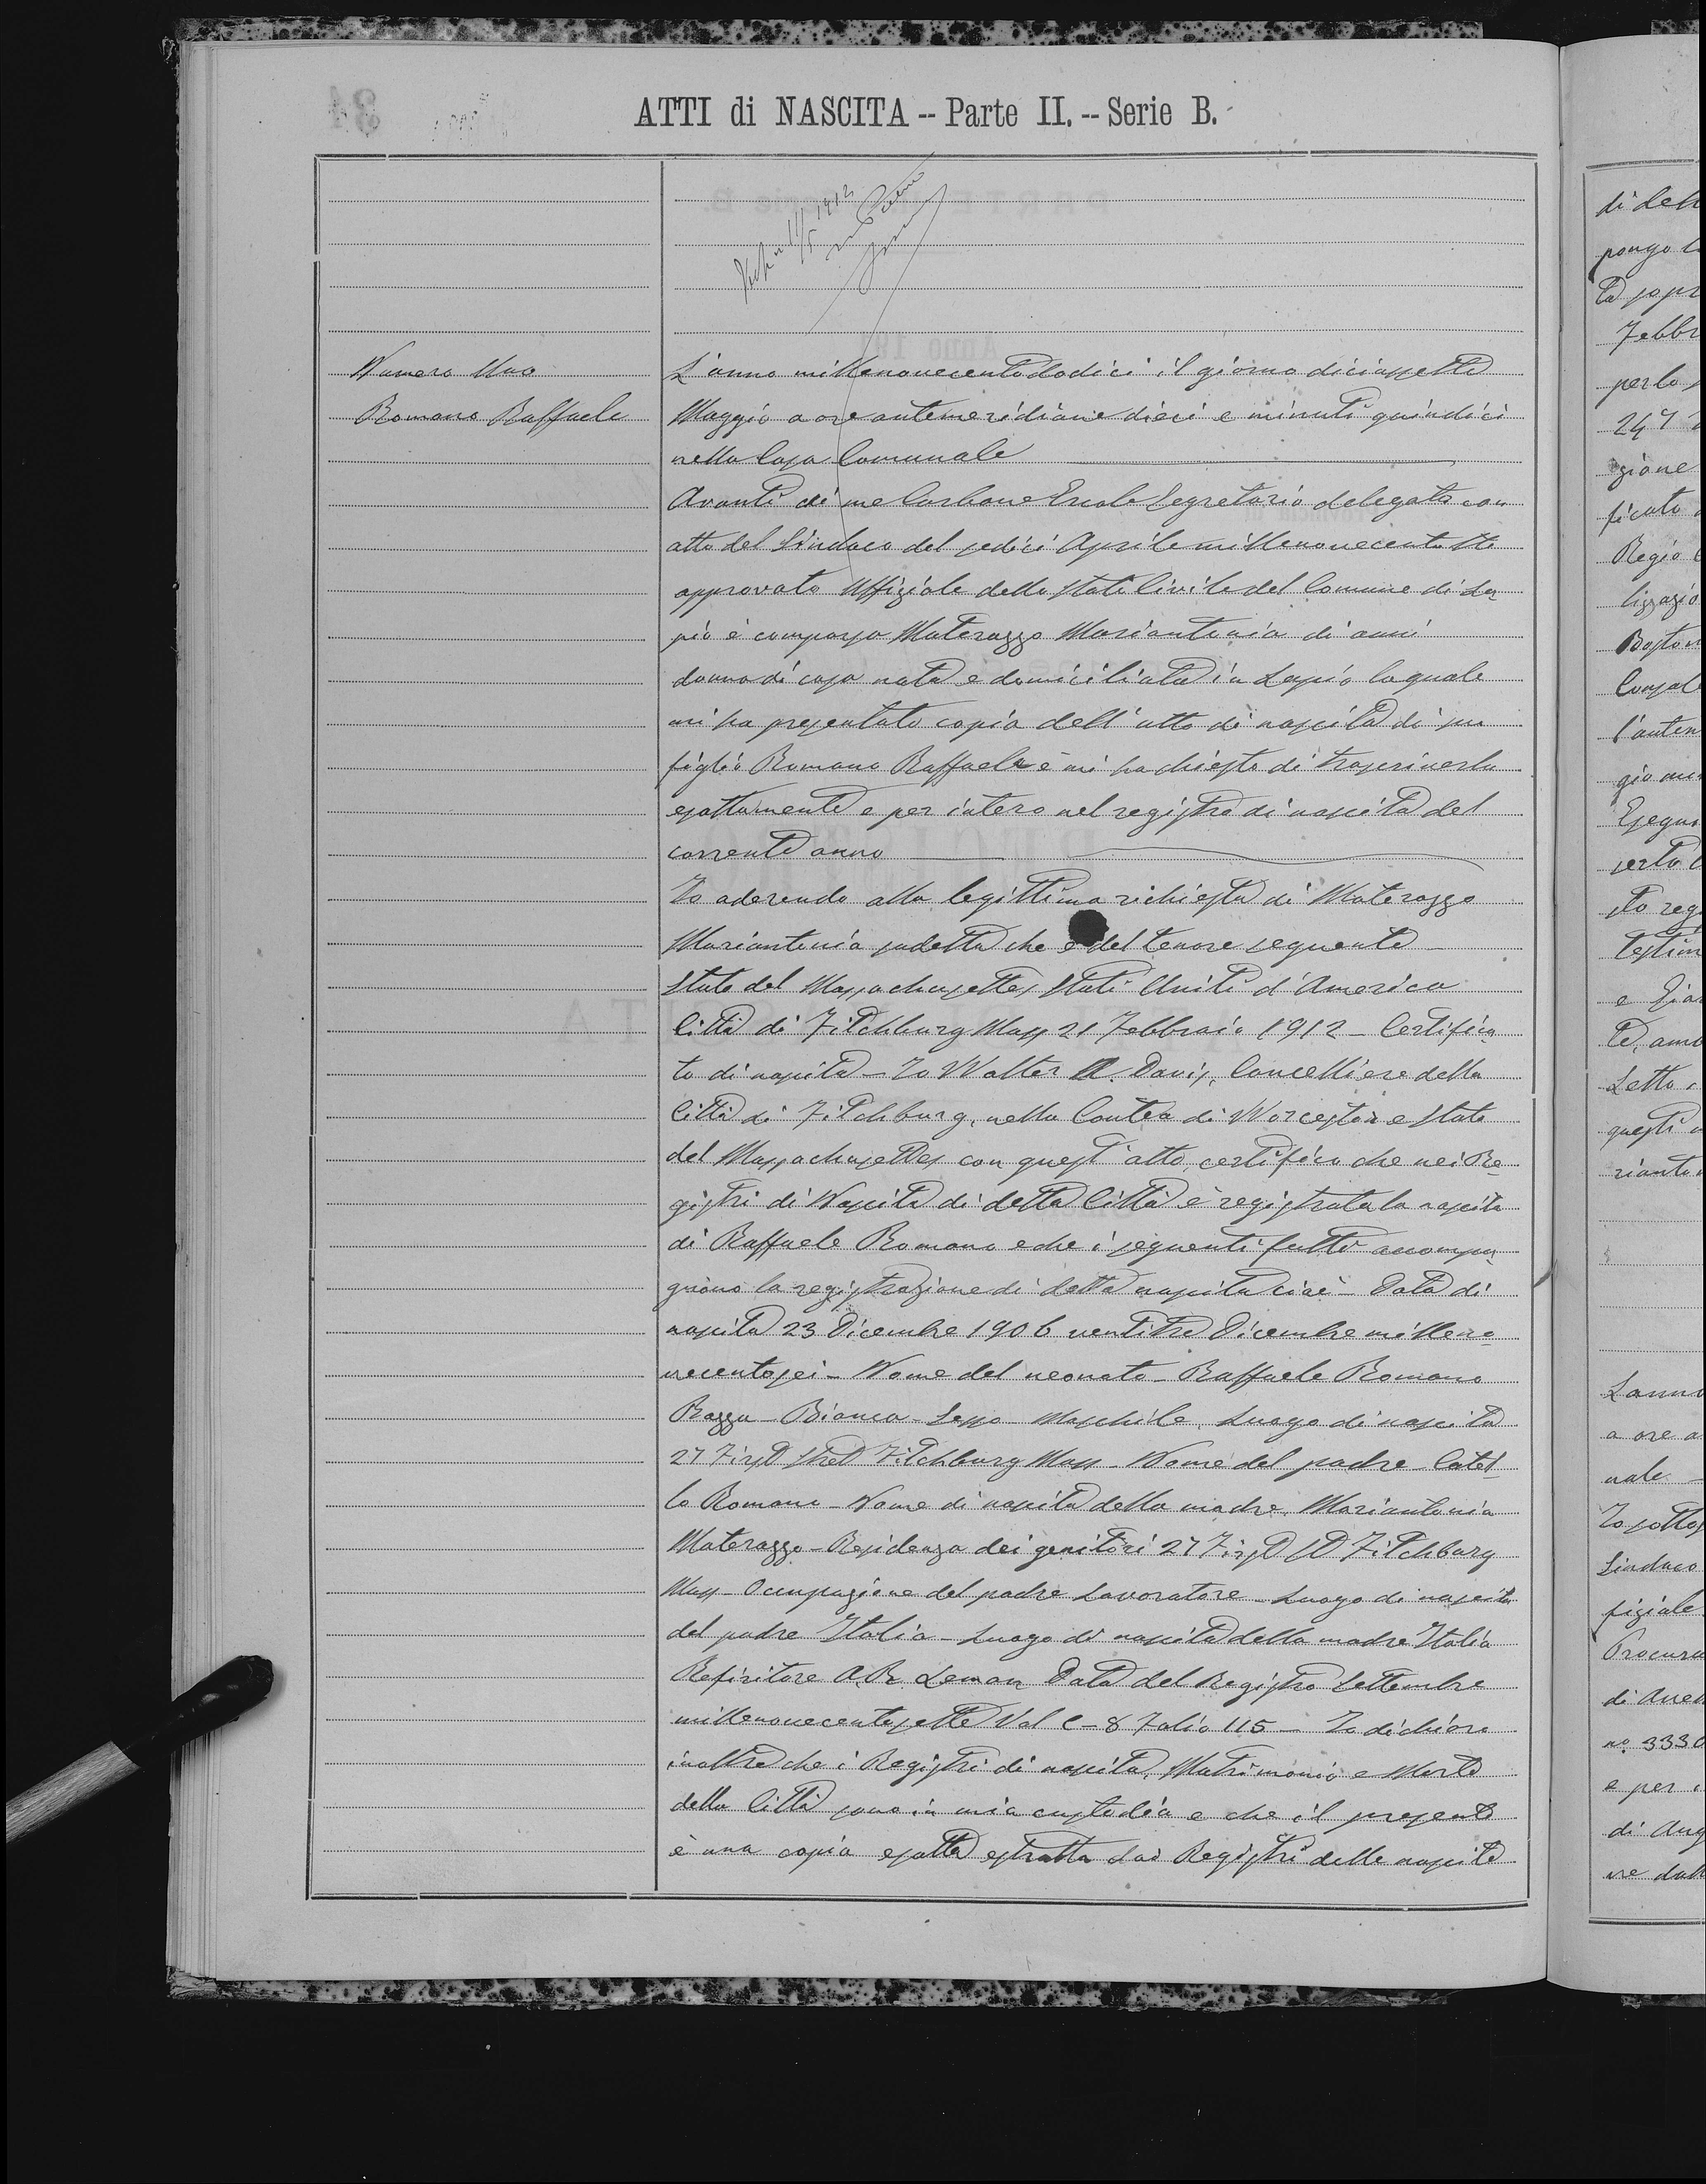 ATTI di NASCITA -- Parte II. -- Serie B.
1912
Numero Uno
Romano Raffaele
L'anno millenovecentododici il giorno diciassette
Maggio a ore antemeridiane dieci e minuti quindici
nella Casa Comunale
Avanti di me Carbone Ercole Segretario delegato con
atto del Sindaco del sedici Aprile millenovecento
approvato Uffiziale dello Stato Civile del Comune di La
pio è comparsa Materazzo Mariantonia di anni
donna di casa nata e domiciliata in Lapio la quale
mi ha presentato copia dell'atto di nascita di su
figlio Romano Raffaele e mi ha chiesto di trascriverlo
esattamente e per intero nel registro di nascita del
corrente anno
Io aderendo alla legittima richiesta di Materazzo
Mariantonia sudetta che è del tenore seguente
Stato del Massachusettes Stati Uniti d'America
Città di Fitchburg Mass 21 Febbraio 1912 - Certifica
to di nascita - Io Walter A. Davis, Cancelliere della
Città di Fitchburg, nella Contea di Worcester e Stato
del Massachusettes con quest'atto, certifico che nei Re-
gistri di Nascita di detta Città è registrata la nascita
di Raffaele Romano e che i seguenti fatti accompa
gnano la registrazione di detta nascita cioè - Data di
nascita 23 Dicembre 1906 ventitre Dicembre milleno-
vecentosei - Nome del neonato - Raffaele Romano
Razza - Bianca - Sesso - Maschile, Luogo di nascita
27 First Stret Fitchburg Mass - Nome del padre - Catel-
lo Romano - Nome di nascita della madre, Mariantonia
Materazzo - Residenza dei genitori 27 First St Fitchburg
Mass - Occupazione del padre Lavoratore - Luogo di nascita
del padre Italia - Luogo di nascita della madre Italia
A. R. Leman Data del Registro Settembre
millenovecentosette Vol C - 8 Folio 115 - Io dichiaro
inoltre che i Registri di nascita, Matrimonio e Morte
della Città sono in mia custodia e che il presente
è una copia esatta estratta dai Registri delle nascite
pongo
Febbr
per lo
247
zione
ficato
Regio
lizzazio
Boston
Consol
l'auten
gio
Esegui
to reg
testim
e Gia
Letto
questi
rianto
L'anno
a ore a
nale
Io sotto
Sindaco
fiziale
Procura
di
no. 3330
e per
di Aug